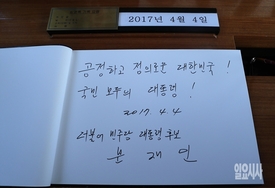 2017년 4월 4일
공정하고 정의로운 대한민국!
국민 모두의 대통령!
2017. 4. 4
더불어 민주당 대통령 후보
문재인